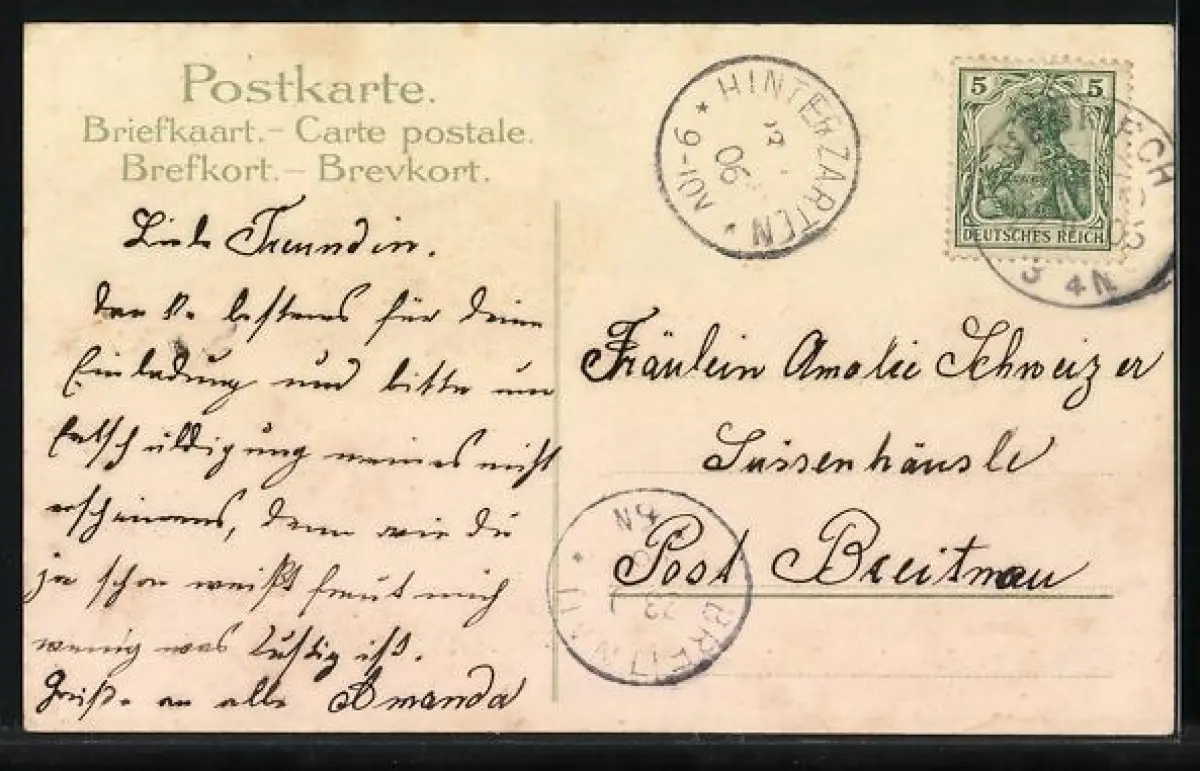 Postkarte.
Briefkaart. – Carte postale.
Brefkort. – Brevkort.
Liebe Freundin.
Danke bestens für Deine
Einladung und bitte um
Entschuldigung meines nicht
erscheinens, denn wie du
ja schon weißt freut mich
wenig was lustig ist.
Grüße an alle Amanda
HINTERZARTEN
06
9-10V
5 5
DEUTSCHES REICH
3 4N
Fräulein Amalie Schweizer
Süssenhäusle
Post Breitnau
BREITNAU